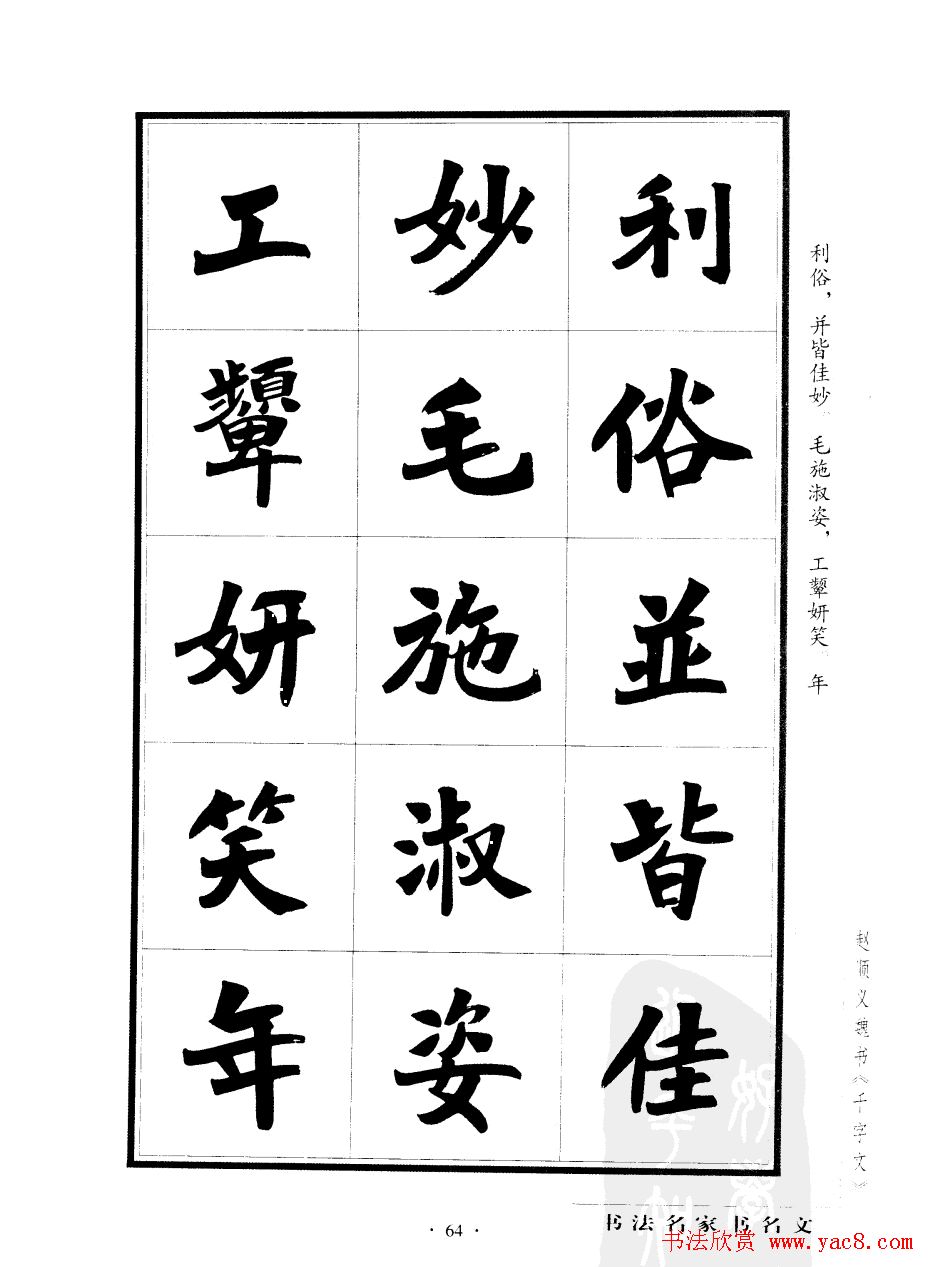 利俗並皆佳
妙毛施淑姿
工顰妍笑年
利俗，并皆佳妙。毛施淑姿，工颦妍笑。年
赵顺义魏书《千字文》
·64·
书法名家书名文
书法欣赏 www.yac8.com